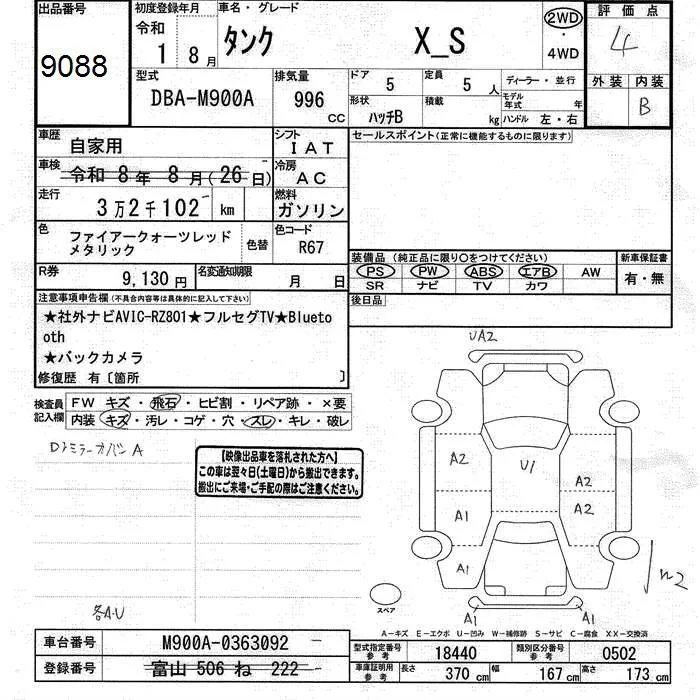 出品番号
9088
初度登録年月
令和
1 8月
車名・グレード
タンク X_S
2WD
・
4WD
評価点
4
外装 内装
B
型式
DBA-M900A
排気量
996 CC
ドア
5
定員
5 人
ディーラー・並行
形状
ハッチB
積載
kg
モデル年式 年
ハンドル 左・右
車歴
自家用
シフト
IAT
セールスポイント(正常に機能するものに限ります)
車検
令和 8年 8月(26日)
冷房
AC
走行
3万2千102 km
燃料
ガソリン
色
ファイアークォーツレッド
メタリック
色替
色コード
R67
装備品(純正品に限り〇をつけてください)
新車保証書
PS PW ABS エアB AW
有・無
SR ナビ TV カワ
R券
9,130円
名変通知期限
月 日
後日品
注意事項申告欄(不具合内容等は具体的に記入して下さい)
★社外ナビAVIC-RZ801★フルセグTV★Blueto
oth
★バックカメラ
修復歴 有〔箇所 〕
検査員
記入欄
FW キズ・飛石・ヒビ割・リペア跡・×要
内装 キズ・汚レ・コゲ・穴・スレ・キレ・破レ
Dドミラーカバン A
【映像出品車を落札された方へ】
この車は翌々日(土曜日)から搬出できます。
搬出にご来場・ご手配の際はご注意ください。
各A・U
UA2
A2
U1
A2
A1
A2
A1
W2
A1
A1
スペア
A-キズ E-エクボ U-凹み W-補修跡 S-サビ C-腐食 XX-交換済
車台番号
M900A-0363092
登録番号
富山 506 ね 222
型式指定番号
参考
18440
類別区分番号
参考
0502
車庫証明用
参考
長さ 370 cm 幅 167 cm 高さ 173 cm